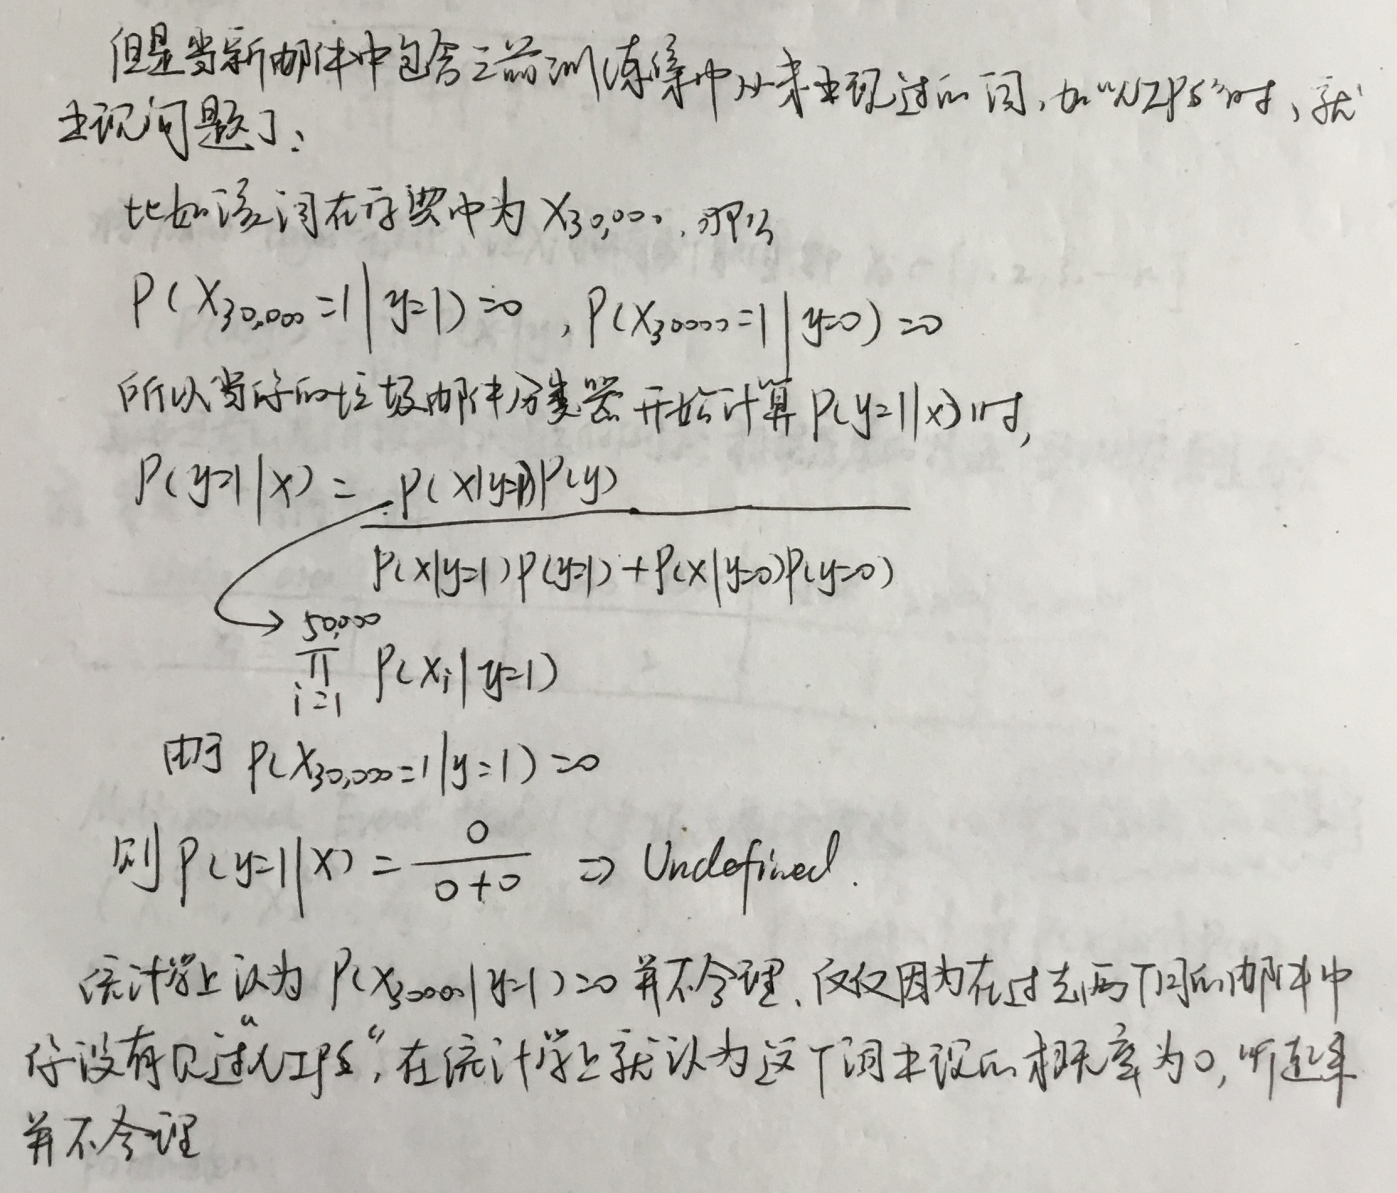 但是当新邮件中包含之前训练集中从未出现过的词,如“NIPS”时,就
出现问题了:
比如该词在字典中为 X30,000,那么
P(X30,000=1|y=1)=0 ,P(X30000=1|y=0)=0
所以当你的垃圾邮件分类器开始计算P(y=1|x)时,
P(y=1|x) = P(x|y=1)P(y)
P(x|y=1)P(y=1)+P(x|y=0)P(y=0)
50,000
∏ P(xi|y=1)
i=1
由于 P(X30,000=1|y=1)=0
则 P(y=1|x) = 0
0+0 ⇒ Undefined.
统计学上认为 P(X30000|y=1)=0 并不合理,仅仅因为在过去两个月的邮件中
你没有见过“NIPS“,在统计学上就认为这个词出现的概率为0,听起来
并不合理